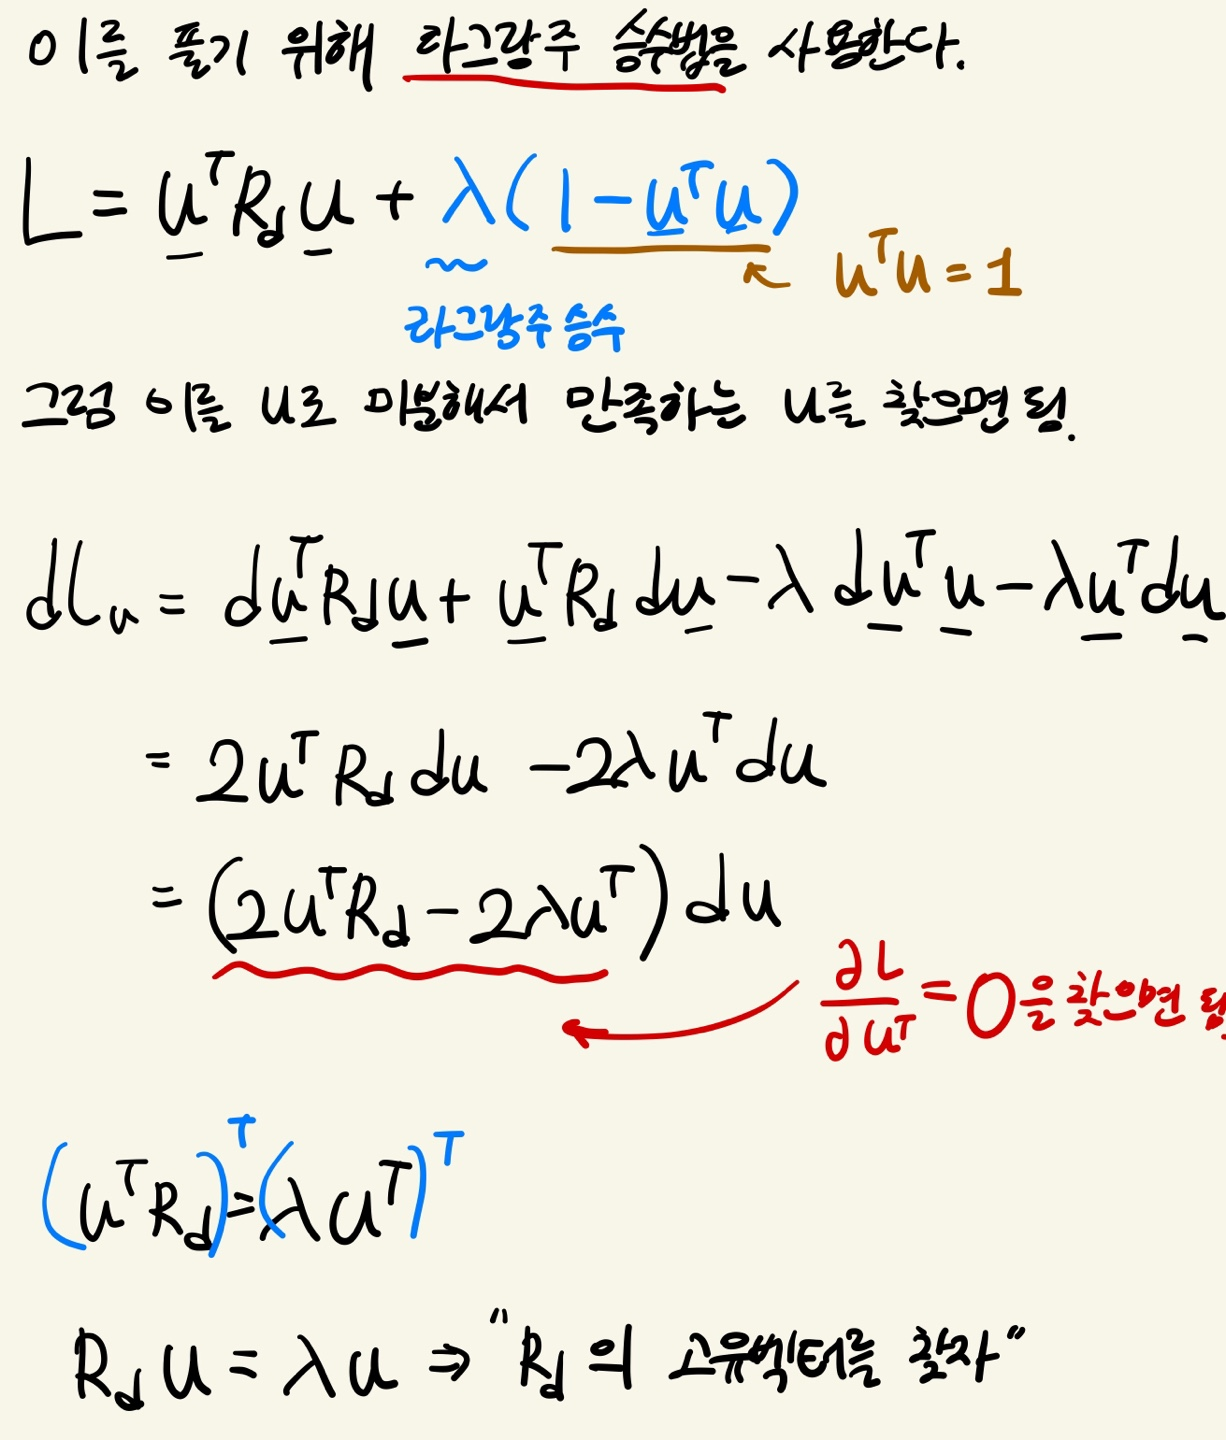 이를 풀기 위해 라그랑주 승수법을 사용한다.
L = u^T R_d u + λ(1 - u^T u)
u^T u = 1
라그랑주 승수
그럼 이를 u로 미분해서 만족하는 u를 찾으면 됨.
dL_u = du^T R_d u + u^T R_d du - λ du^T u - λu^T du
= 2u^T R_d du - 2λu^T du
= (2u^T R_d - 2λu^T) du
∂L/∂u^T = 0을 찾으면 됨.
(u^T R_d)^T = (λu^T)^T
R_d u = λu ⇒ "R_d의 고유벡터를 찾자"